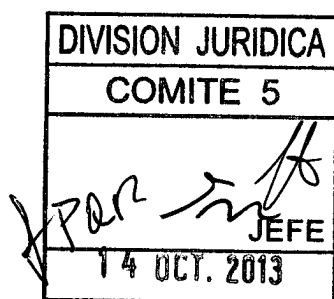 DIVISION JURIDICA
COMITE 5
JEFE
14 OCT. 2013